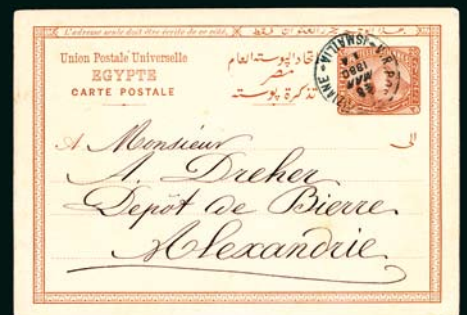 L'adresse seule doit être écrite de ce côté.
Union Postale Universelle
EGYPTE
CARTE POSTALE
اتحاد البوسته العام
مصر
تذكرة بوسته
الى
A Monsieur
A. Dreher
Depôt de Bierre
Alexandrie
ISMAILIA
MAR
1880